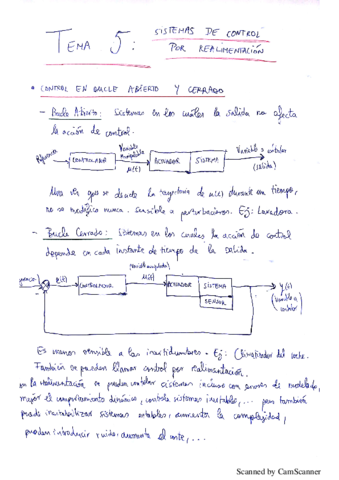 TEMA 5: SISTEMAS DE CONTROL
POR REALIMENTACIÓN
• CONTROL EN BUCLE ABIERTO Y CERRADO
– Bucle Abierto: Sistemas en los cuales la salida no afecta
la acción de control.
Referencia
CONTROLADOR
Variable
manipulable
u(t)
ACTUADOR
SISTEMA
Variable a controlar
(salida)
Una vez que se decide la trayectoria de u(t) durante un tiempo,
no se modifica nunca. Sensible a perturbaciones. Ej: Lavadora.
– Bucle Cerrado: Sistemas en los cuales la acción de control
depende en cada instante de tiempo de la salida.
e(t)
CONTROLADOR
u(t)
ACTUADOR
SISTEMA
SENSOR
y(t)
(variable a
controlar)
Es menos sensible a las incertidumbres. Ej: Climatizador del coche.
También se pueden llamar control por realimentación.
En la realimentación se pueden controlar sistemas incluso con errores de modelado,
mejor el comportamiento dinámico, controla sistemas inestables, ... pero también
puede inestabilizar sistemas estables, aumentar la complejidad,
pueden introducir ruido, aumenta el coste, ...
Scanned by CamScanner